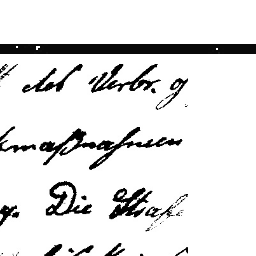 des Verbr. g
maßnahmen
g. Die Strafe